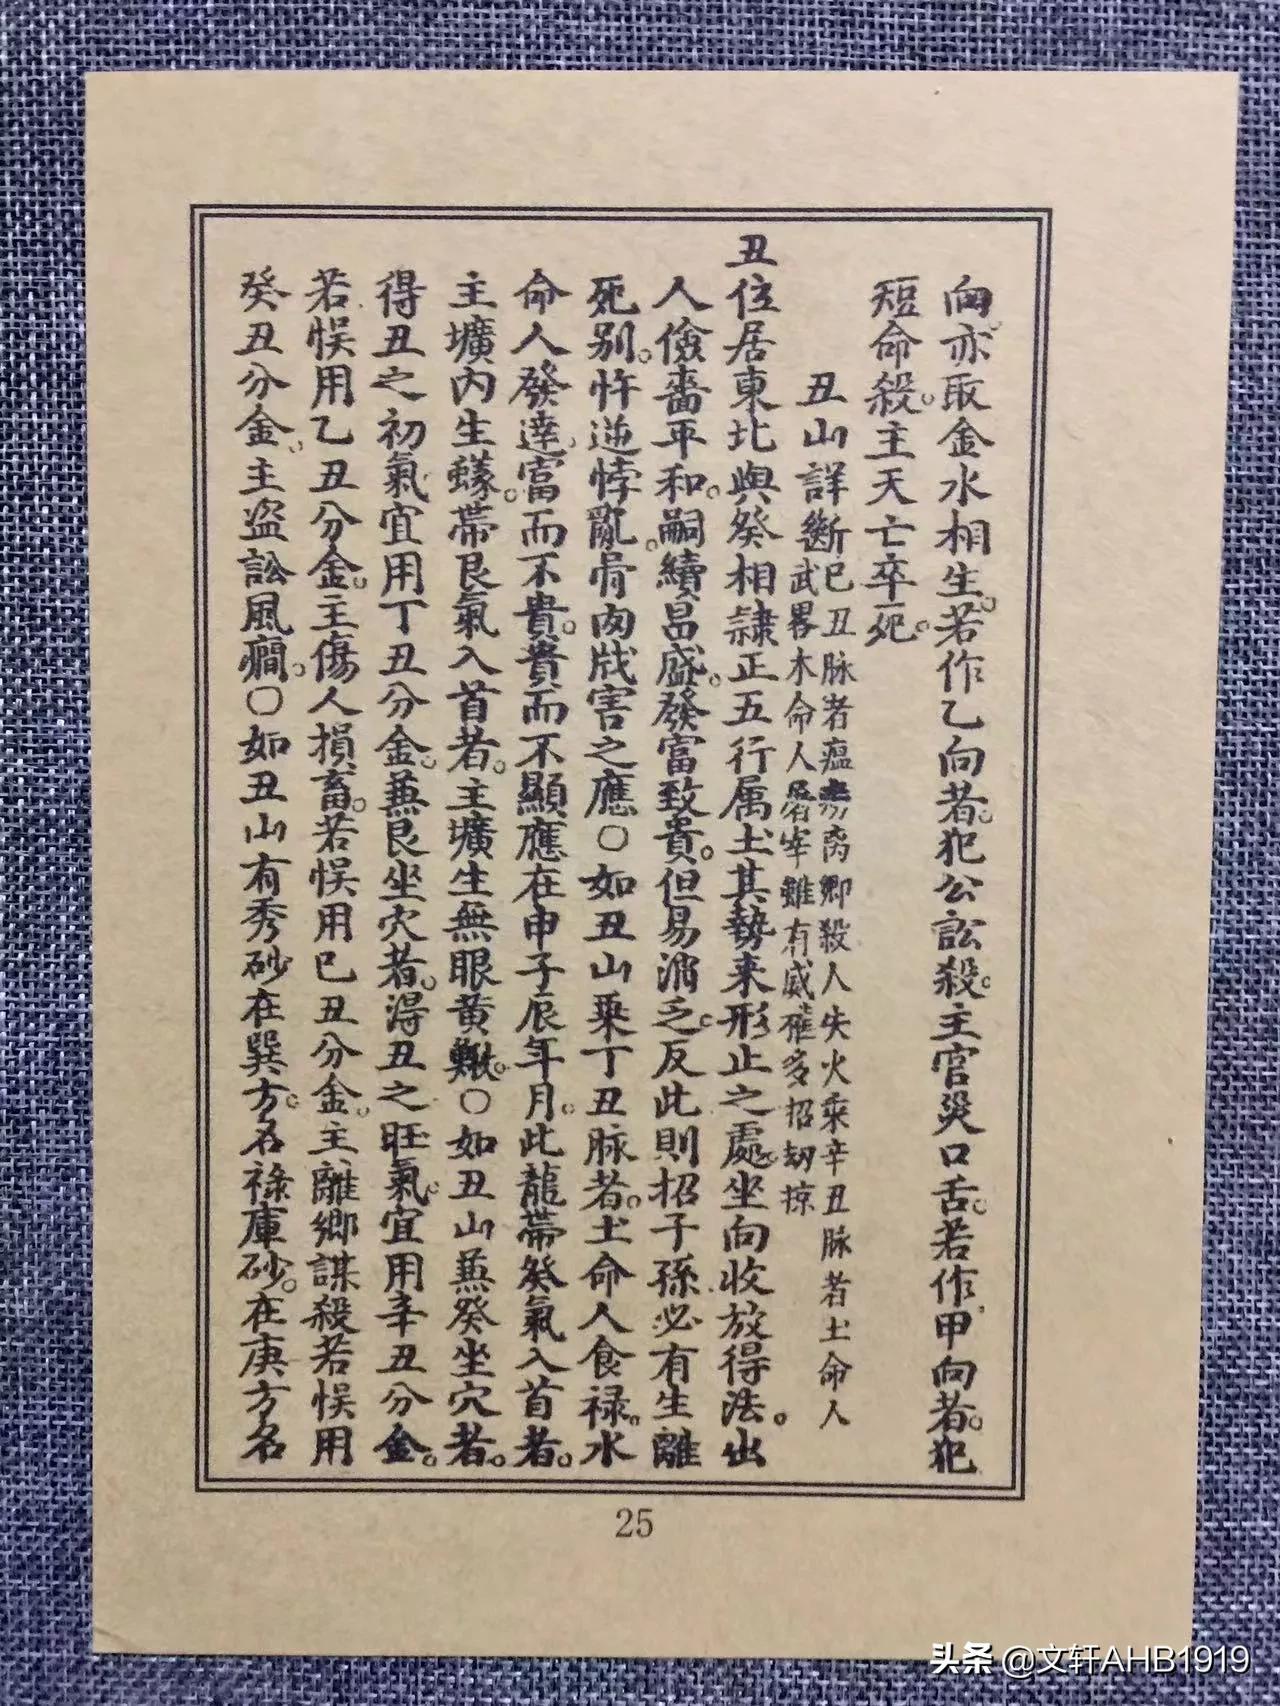 向亦取金水相生。若作乙向者。犯公訟殺。主官災口舌。若作甲向者。犯
短命殺。主夭亡卒死。
丑山詳斷
巳丑脉者瘟易离鄉殺人失火乘辛丑脉者土命人
武畧木命人屠宰雖有威權多招刼掠
丑位居東北與癸相隷正五行属土其勢来形止之處。坐向收放得法。出
人儉嗇平和。嗣續昌盛。發富致貴。但易消乏。反此則招子孫必有生離
死别。忤逆悖亂。骨肉戕害之應〇如丑山乗丁丑脉者。土命人食禄。水
命人發達。富而不貴。貴而不顯應在申子辰年月。此龍帶癸氣入首者。
主壙内生蟻。帶艮氣入首者。主壙生無眼黄鰍。〇如丑山兼癸坐穴者。
得丑之初氣宜用丁丑分金。兼艮坐穴者。得丑之旺氣。宜用辛丑分金。
若悮用乙丑分金。主傷人損畜。若悮用巳丑分金。主離鄉謀殺若悮用
癸丑分金。主盗訟風癎。〇如丑山有秀砂在巽方。名禄庫砂。在庚方名
25
头条 @文轩AHB1919